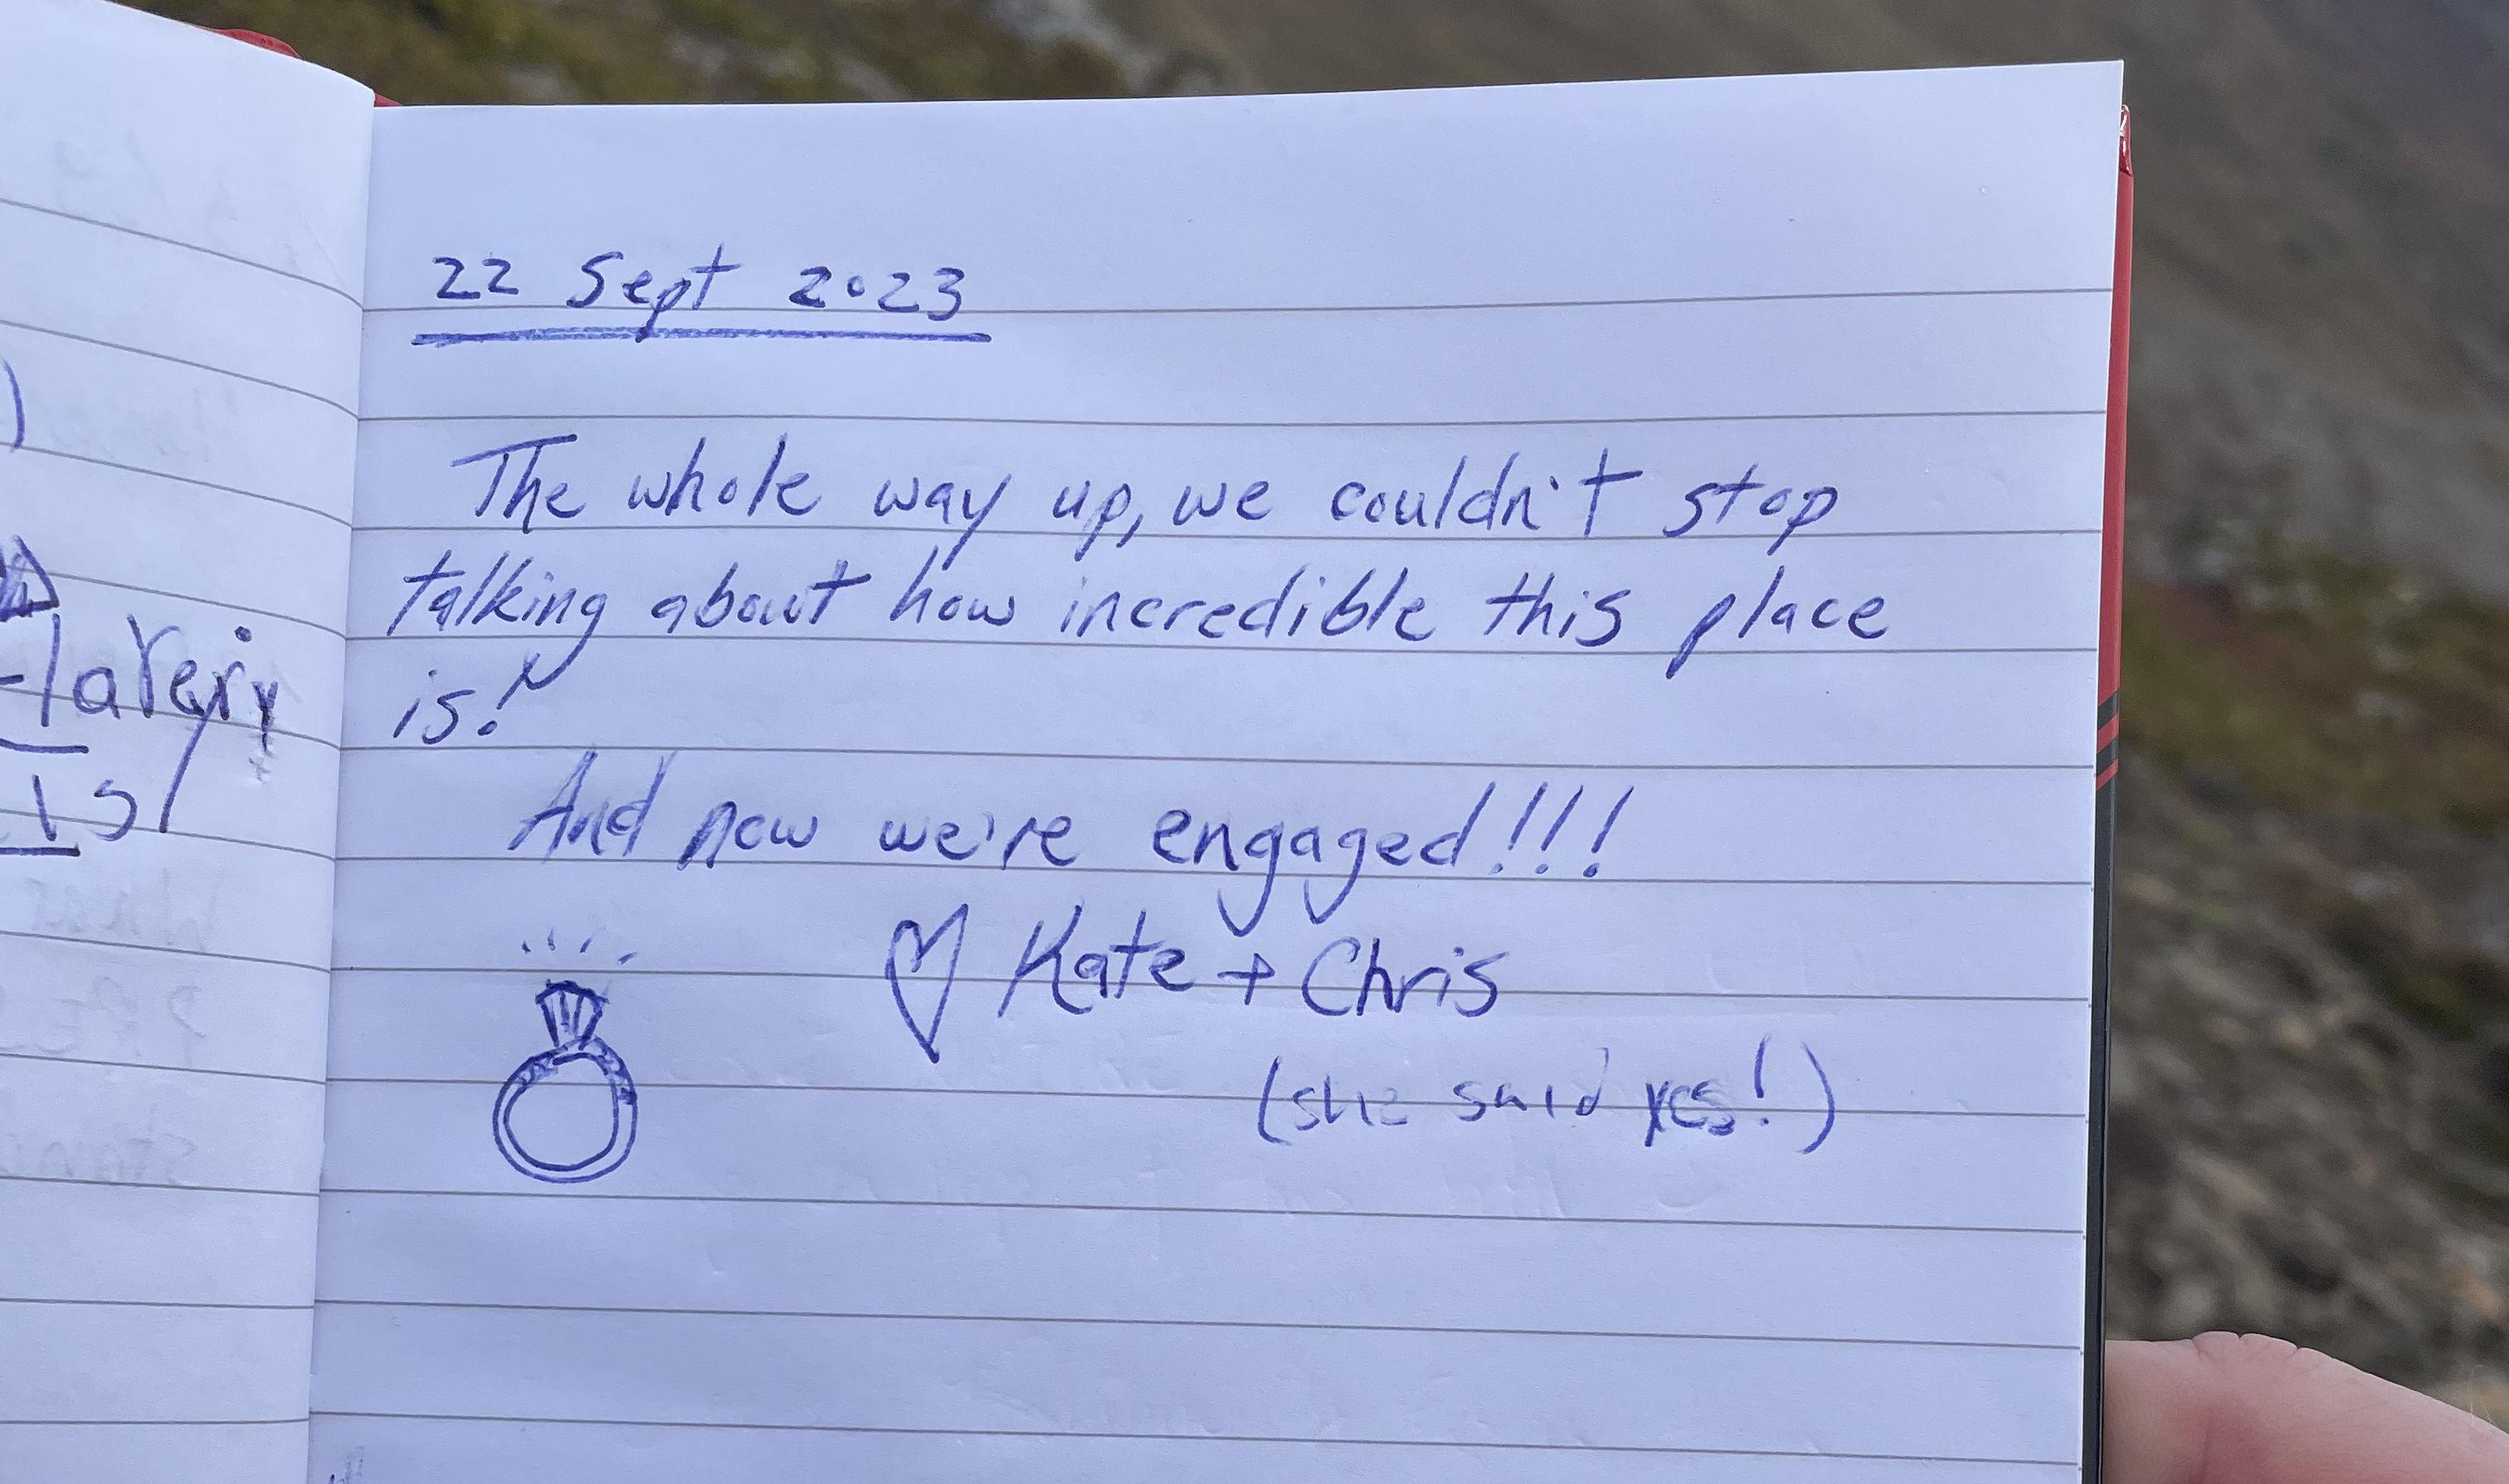 22 Sept 2023
The whole way up, we couldn't stop
talking about how incredible this place
is!
And now we're engaged!!!
♡ Kate + Chris
(she said yes!)